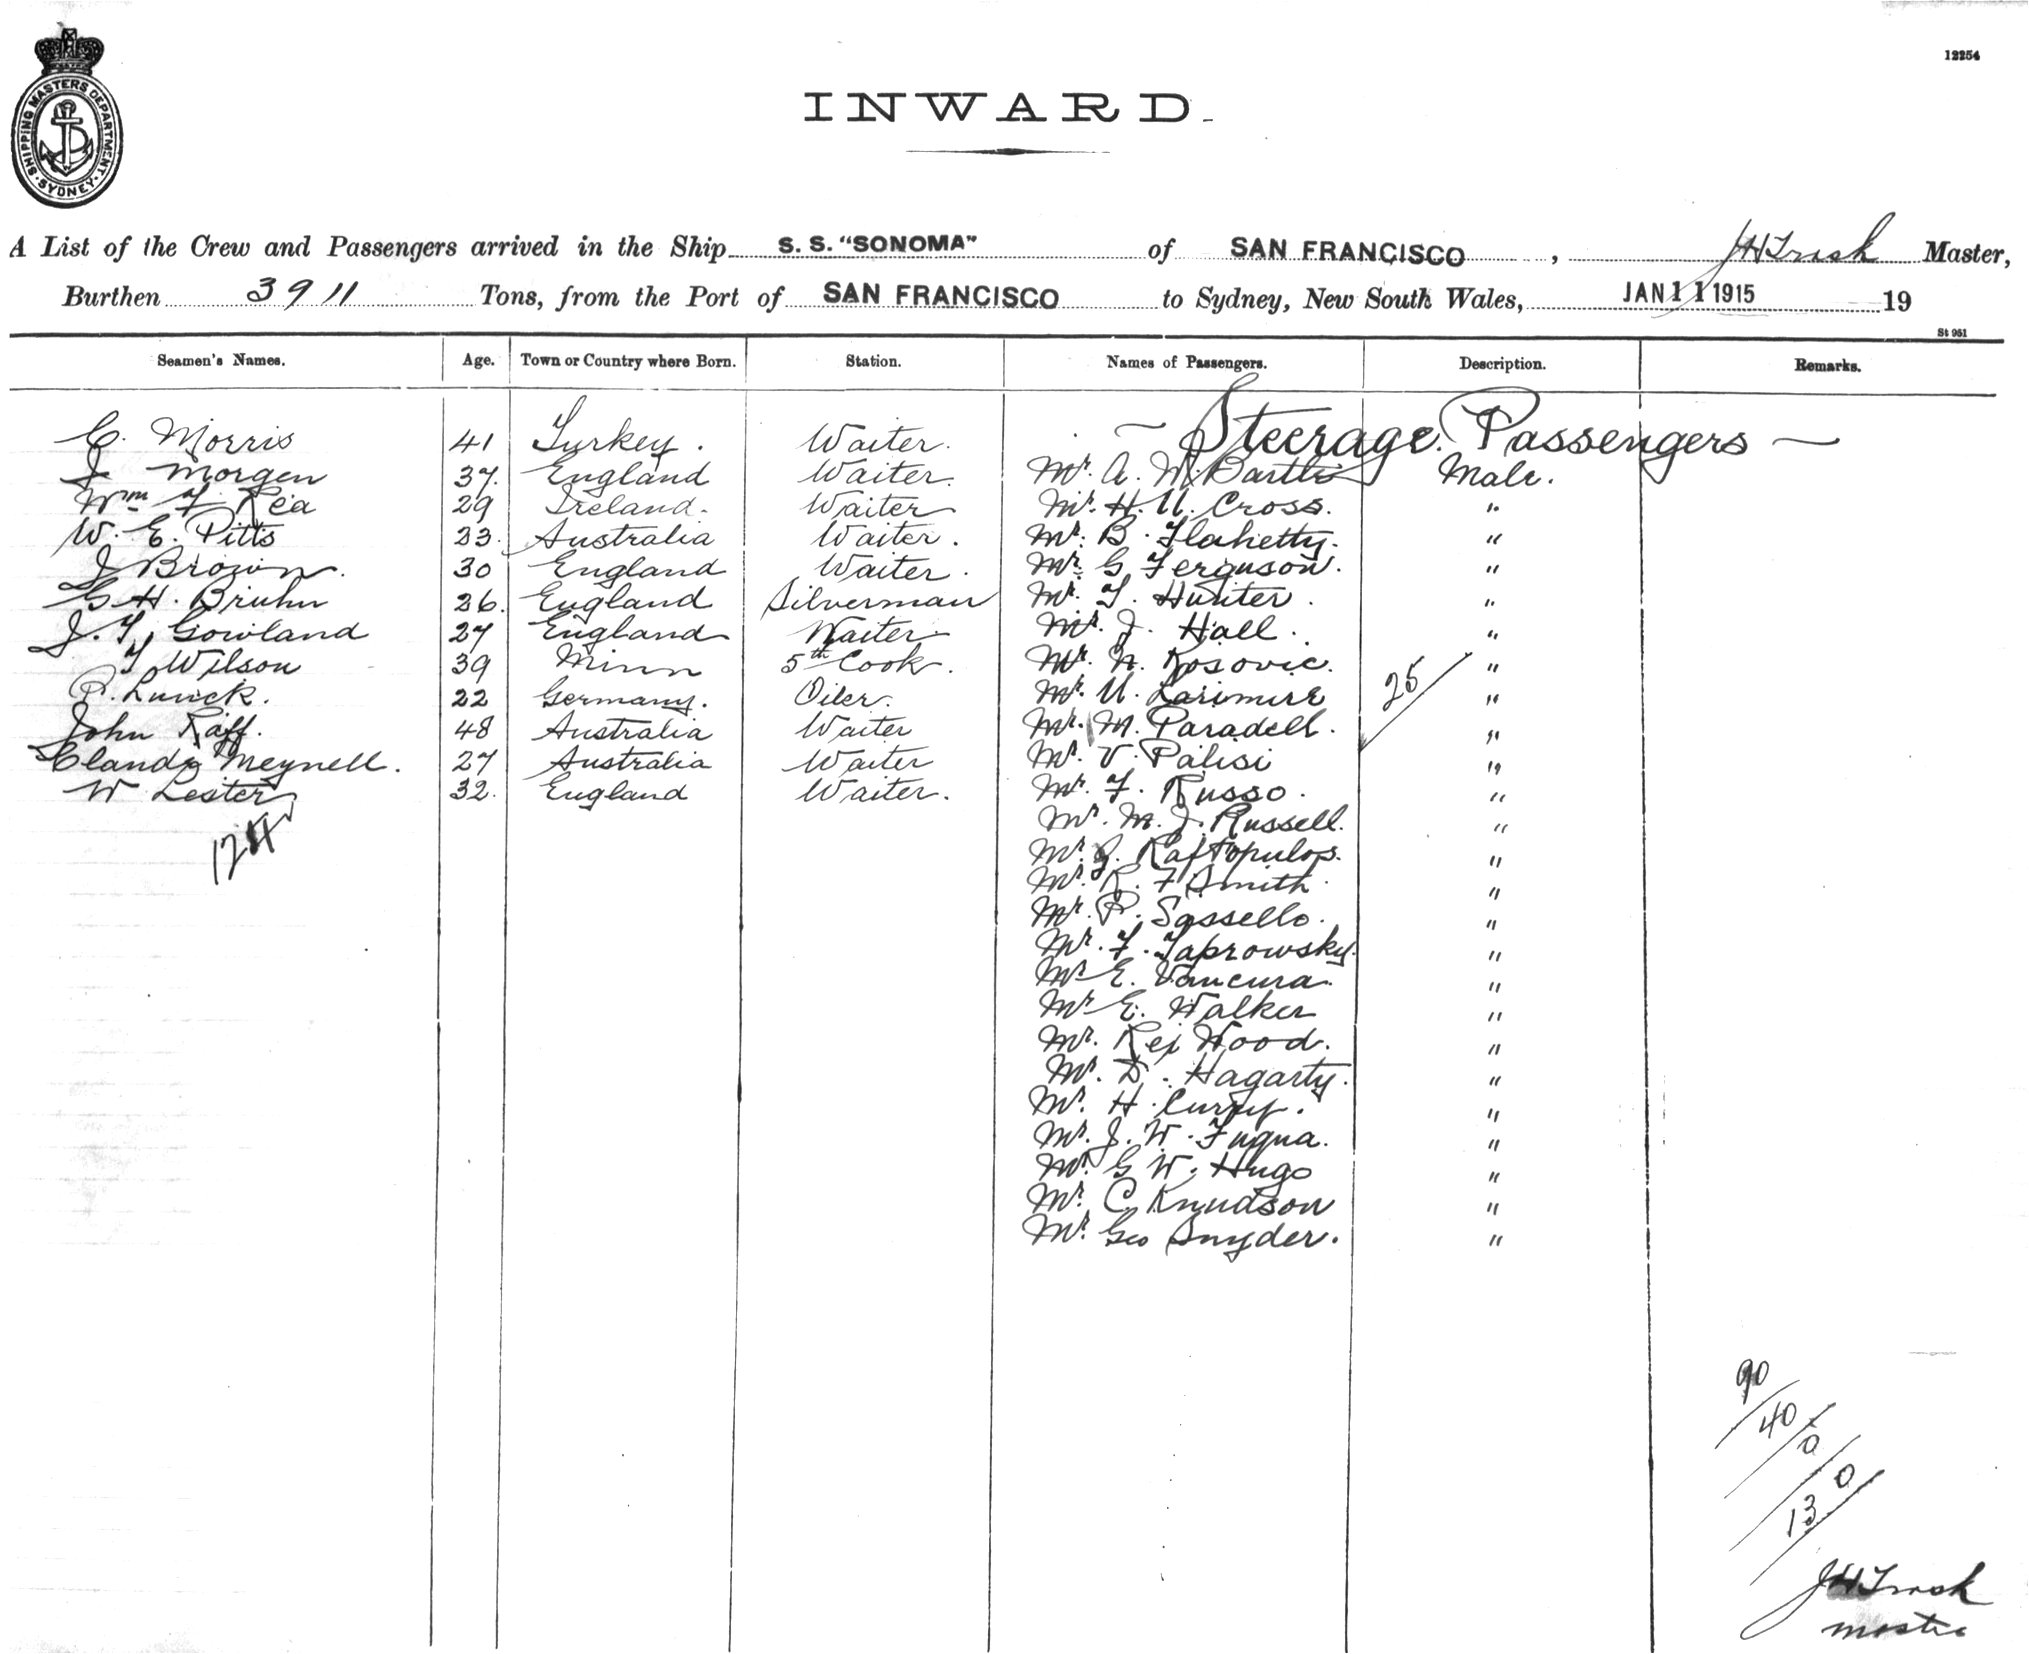 SHIPPING MASTERS DEPARTMENT
SYDNEY
12254
INWARD.
A List of the Crew and Passengers arrived in the Ship S. S. "SONOMA" of SAN FRANCISCO, JH Trask Master,
Burthen 3911 Tons, from the Port of SAN FRANCISCO to Sydney, New South Wales, JAN 11 1915 19
St 961
Seamen's Names. Age. Town or Country where Born. Station. Names of Passengers. Description. Remarks.
— Steerage Passengers —
C. Morris 41 Turkey. Waiter.
J Morgen 37. England Waiter. Mr. A. M. Bartlis Male.
Wm F. Rea 29 Ireland. Waiter Mr. H. U. Cross. "
W. E. Pitts 23. Australia Waiter. Mr. B. Flahetty. "
J Brown. 30 England Waiter. Mr. G Ferguson. "
G H. Bruhn 26. England Silverman Mr. T. Hunter. "
J. T. Gowland 27 England Waiter Mr. J. Hall. "
T Wilson 39 Minn 5th Cook. Mr. N. Kosovic. "
P. Lunck. 22 Germany. Oiler. Mr. U. Larimire 25 "
John Raff. 48 Australia Waiter Mr. M. Paradell. "
Claude Meynell. 27 Australia Waiter Mr. V. Palisi "
W Lester 32. England Waiter. Mr. F. Russo. "
124 Mr. M. J. Russell. "
Mr. J. Raftopulos. "
Mr. R. F Smith. "
Mr. P. Sassello. "
Mr. F. Taprowsky. "
Mr E. Vancura. "
Mr E. Walker "
Mr. Rej Wood. "
Mr. D. Hagarty. "
Mr. H. Curry. "
Mr. J. W. Fuqua. "
Mr. G W. Hugo "
Mr. C. Knudson "
Mr. Geo Snyder. "
90
40
0
0
13
JH Trask
master